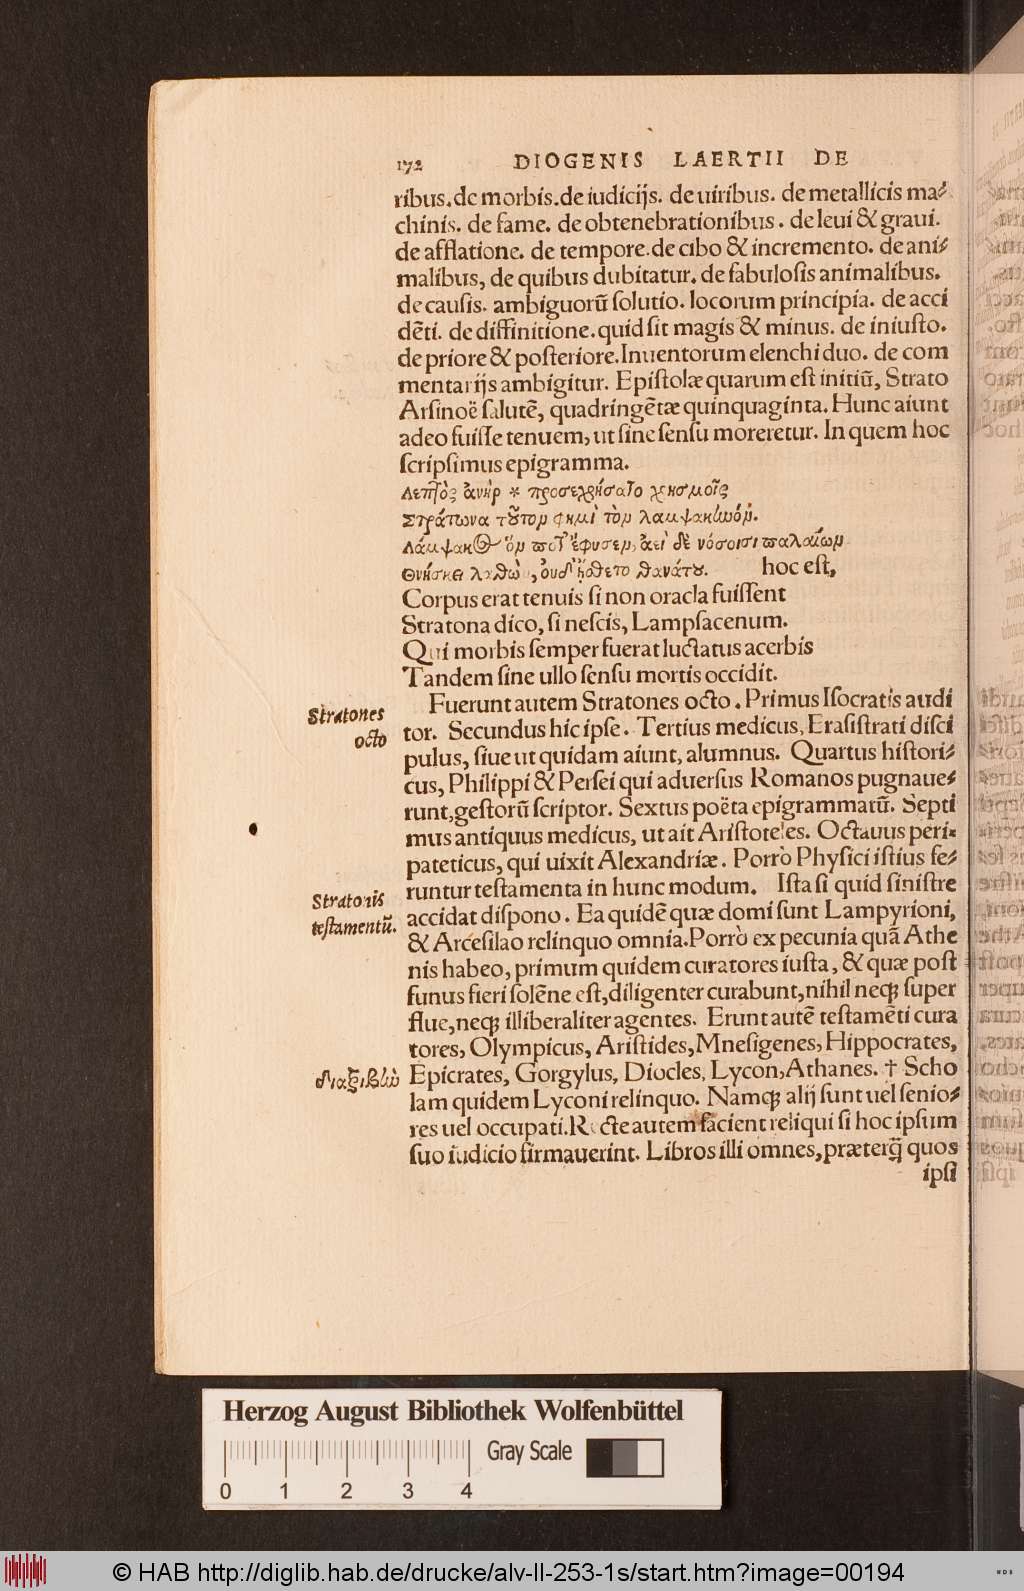 172 DIOGENIS LAERTII DE
ribus. de morbis. de iudicijs. de uiribus. de metallicis ma⸗
chinis. de fame. de obtenebrationibus. de leui & graui.
de afflatione. de tempore. de cibo & incremento. de ani⸗
malibus, de quibus dubitatur. de fabulosis animalibus.
de causis. ambiguorũ solutio. locorum principia. de acci
dẽti. de diffinitione. quid sit magis & minus. de iniusto.
de priore & posteriore. Inuentorum elenchi duo. de com
mentarijs ambigitur. Epistolæ quarum est initiũ, Strato
Arsinoë salutẽ, quadringẽtæ quinquaginta. Hunc aiunt
adeo fuisse tenuem, ut sine sensu moreretur. In quem hoc
scripsimus epigramma.
Λεπτὸς ἀνὴρ * προσεχρήσατο χρησμοῖς
Στράτωνα τοῦτον φημὶ τὸν λαμψακηνόν.
Λάμψακος ὅν ποτ᾽ ἔφυσεν, ἀεὶ δὲ νόσοισι παλαίων
Θνήσκει λαθὼν, οὐδ᾽ ᾔσθετο θανάτου. hoc est,
Corpus erat tenuis si non oracla fuissent
Stratona dico, si nescis, Lampsacenum.
Qui morbis semper fuerat luctatus acerbis
Tandem sine ullo sensu mortis occidit.
Stratones
octo
Fuerunt autem Stratones octo. Primus Isocratis audi
tor. Secundus hic ipse. Tertius medicus, Erasistrati disci
pulus, siue ut quidam aiunt, alumnus. Quartus histori⸗
cus, Philippi & Persei qui aduersus Romanos pugnaue⸗
runt, gestorũ scriptor. Sextus poëta epigrammatũ. Septi
mus antiquus medicus, ut ait Aristoteles. Octauus peri⸗
pateticus, qui uixit Alexandriæ. Porrò Physici istius fe⸗
Stratonis
testamentũ.
runtur testamenta in hunc modum. Ista si quid sinistre
accidat dispono. Ea quidẽ quæ domi sunt Lampyrioni,
& Arcesilao relinquo omnia. Porrò ex pecunia quã Athe
nis habeo, primum quidem curatores iusta, & quæ post
funus fieri solẽne est, diligenter curabunt, nihil neqꝫ super
flue, neqꝫ illiberaliter agentes. Erunt autẽ testamẽti cura
tores, Olympicus, Aristides, Mnesigenes, Hippocrates,
Epicrates, Gorgylus, Diocles, Lycon, Athanes. † Scho
lam quidem Lyconi relinquo. Namqꝫ alij sunt uel senio⸗
res uel occupati. Recte autem facient reliqui si hoc ipsum
suo iudicio firmauerint. Libros illi omnes, præterq̃ quos
ipsi
Herzog August Bibliothek Wolfenbüttel
Gray Scale
0 1 2 3 4
© HAB http://diglib.hab.de/drucke/alv-ll-253-1s/start.htm?image=00194